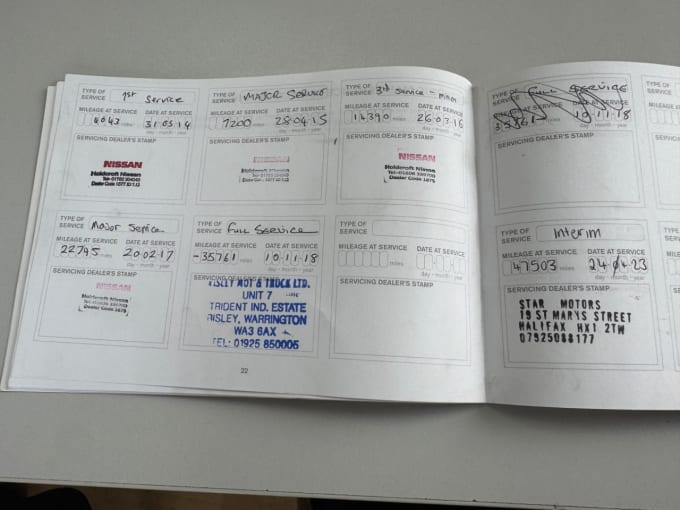 TYPE OF SERVICE 1st Service
MILEAGE AT SERVICE DATE AT SERVICE
4043 miles 31.03.14
day - month - year
SERVICING DEALER'S STAMP
NISSAN
Holdcroft Nissan
TYPE OF SERVICE MAJOR SERVICE
MILEAGE AT SERVICE DATE AT SERVICE
7200 miles 28.04.15
day - month - year
SERVICING DEALER'S STAMP
NISSAN
TYPE OF SERVICE 3rd Service - minor
MILEAGE AT SERVICE DATE AT SERVICE
14390 miles 26.03.16
day - month - year
SERVICING DEALER'S STAMP
NISSAN
Holdcroft Nissan
TYPE OF SERVICE Major Service
MILEAGE AT SERVICE DATE AT SERVICE
22795 miles 20.02.17
day - month - year
SERVICING DEALER'S STAMP
NISSAN
Holdcroft Nissan
TYPE OF SERVICE Full Service
MILEAGE AT SERVICE DATE AT SERVICE
-35761 miles 10.11.18
day - month - year
SERVICING DEALER'S STAMP
MOT & TRUCK LTD.
UNIT 7
TRIDENT IND. ESTATE
RISLEY, WARRINGTON
WA3 6AX
TEL: 01925 850005
TYPE OF SERVICE
MILEAGE AT SERVICE DATE AT SERVICE
miles
day - month - year
SERVICING DEALER'S STAMP
22
TYPE OF SERVICE Full SERVICE
MILEAGE AT SERVICE DATE AT SERVICE
10.11.18
day - month - year
SERVICING DEALER'S STAMP
TYPE OF SERVICE Interim
MILEAGE AT SERVICE DATE AT SERVICE
47503 miles 24.04.23
day - month - year
SERVICING DEALER'S STAMP
STAR MOTORS
19 ST MARYS STREET
HALIFAX HX1 2TW
07925088177